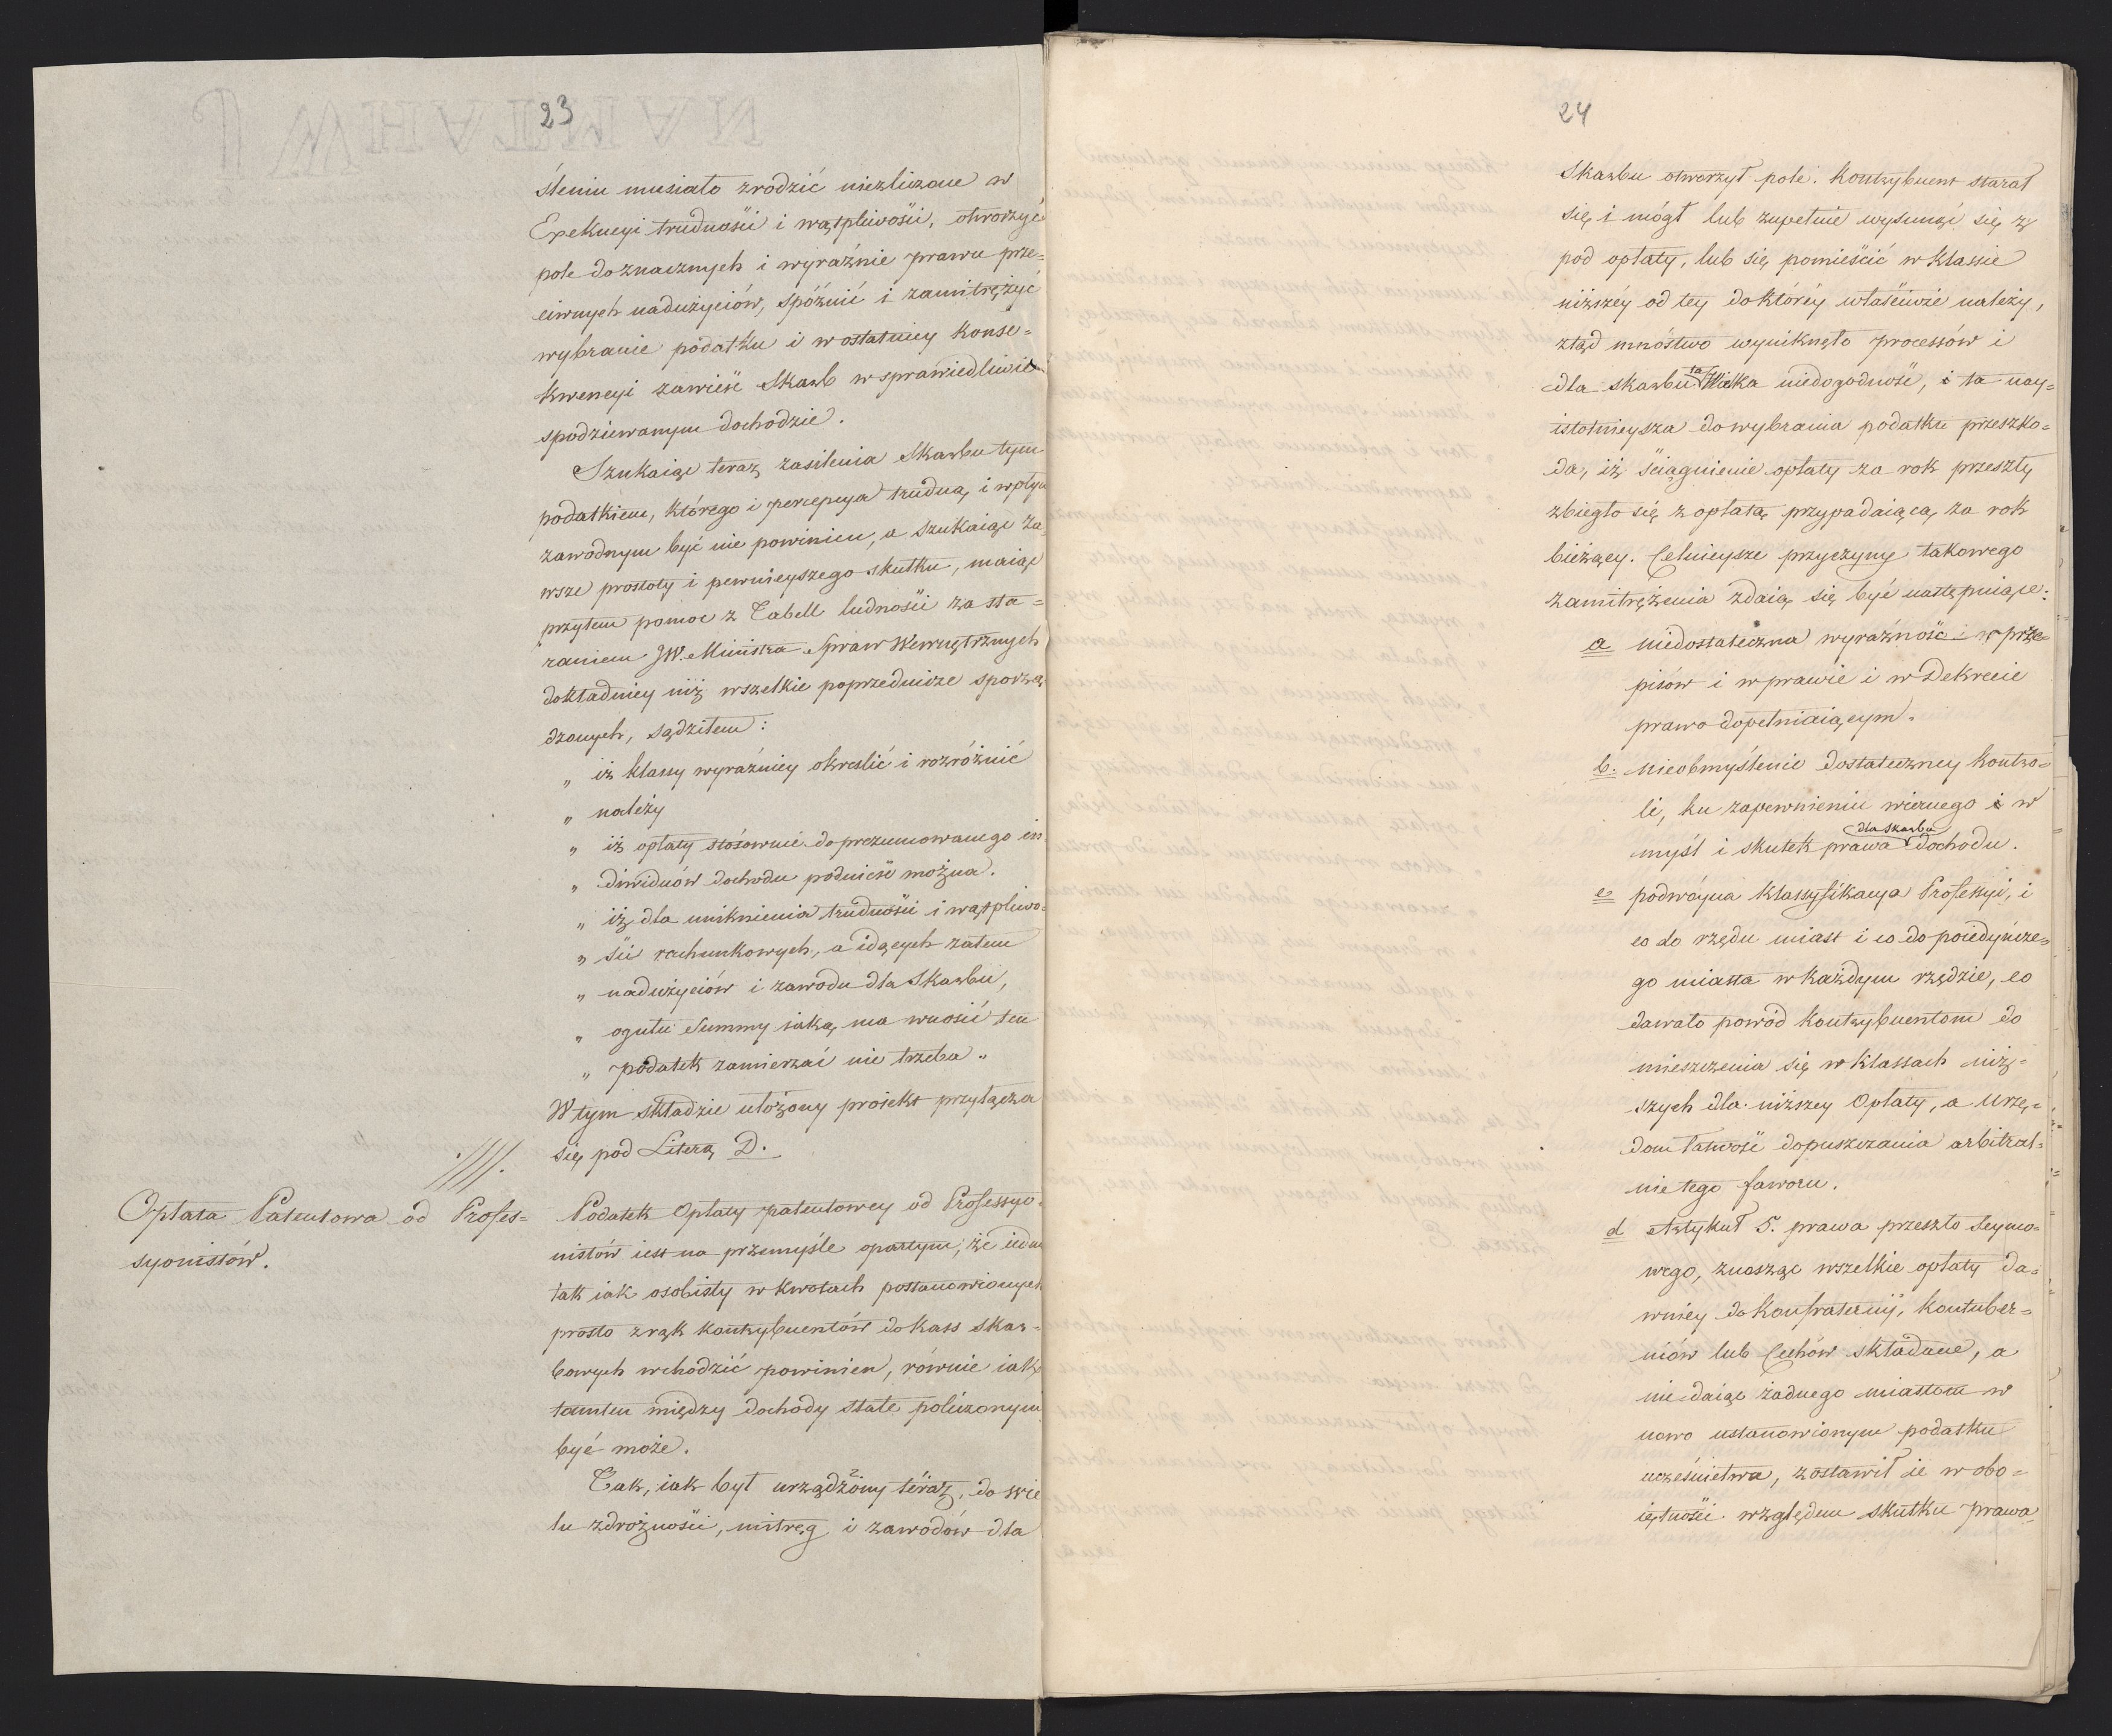 23
śleniu musiało zrodzić niezliczone w
Exekucyi trudności i wątpliwości, otworzyć
pole do znacznych i wyraźnie prawu prze=
ciwnych nadużyciów, spóźnić i zamitrężyć
wybranie podatku i w ostatniey konse=
kwencyi zawieść Skarb w sprawiedliwie
spodziewanym dochodzie.
Szukaiąc teraz zasilenia Skarbu tym
podatkiem, którego i percepcya trudną, i wpływ
zawodnym być nie powinien, a szukaiąc za=
wsze prostoty i pewnieyszego skutku, maiąc
przytem pomoc z Tabell ludności za sta=
raniem JW. Ministra Spraw Wewnętrznych
dokładniey niż wszelkie poprzednicze sporzą
dzonych, sądziłem:
„ iż klassy wyraźniey określić i rozróżnić
„ należy
„ iż opłaty stósownie do prezumowanego in
„ dividuów dochodu podnieść można.
„ iż dla uniknienia trudności i wątpliwo=
„ ści rachunkowych, a idących zatem
„ nadużyciów i zawodu dla Skarbu,
„ ogułu Summy iaką ma wnosić ten
„ podatek zamierzać nie trzeba „
W tym składzie ułożony proiekt przyłącza
się pod Literą D.
Opłata Patentowa od Profes=
syonistów.
Podatek Opłaty patentowey od Professyo=
nistów iest na przemyśle opartym, że iedna
tak iak osobisty w kwotach postanowionych
prosto z rąk kontrybuentów do kass skar=
bowych wchodzić powinien, równie iak
tamten między dochody stałe policzonym
być może.
Tak, iak był urządzony teraz, do wie
lu zdrożności, mitręg i zawodów dla
24
Skarbu otworzył pole. Kontrybuent starał
się i mógł lub zupełnie wysunąć się z
pod opłaty, lub się pomieścić w klassie
niższéy od tey do któréy właściwie należy,
ztąd mnóstwo wyniknęło processów i
dla skarbu ta wielka niedogodność, i ta nay=
istotnieysza do wybrania podatku przeszko=
da, iż ściągnienie opłaty za rok przeszły
zbiegło się z opłatą przypadaiącą za rok
bieżący. Celnieysze przyczyny takowego
zamitrężenia zdaią się być następuiące:
a niedostateczna wyraźność w prze=
pisów i w prawie i w Dekrecie
prawo dopełniaiącym.
b. nieobmyślenie dostateczney kontro=
li, ku zapewnieniu wiernego i w
myśl i skutek prawa dla Skarbu dochodu.
c podwóyna klassyfikacya Professyi, i
co do rzędu miast i co do poiedyńcze=
go miasta w każdym rzędzie, co
dawało powód kontrybuentom do
mieszczenia się w klassach niż=
szych dla niższey Opłaty, a Urzę=
dom łatwość dopuszczania arbitral=
nie tego faworu.
d Artykuł 5. prawa przeszło Seymo=
wego, znosząc wszelkie opłaty da=
wniey do Konfraternij, kontuber=
niów lub Cechów składane, a
nie daiąc żadnego miastom w
nowo ustanowionym podatku
uczestnictwa, zostawił ie w obo=
iętności względem skutku prawa